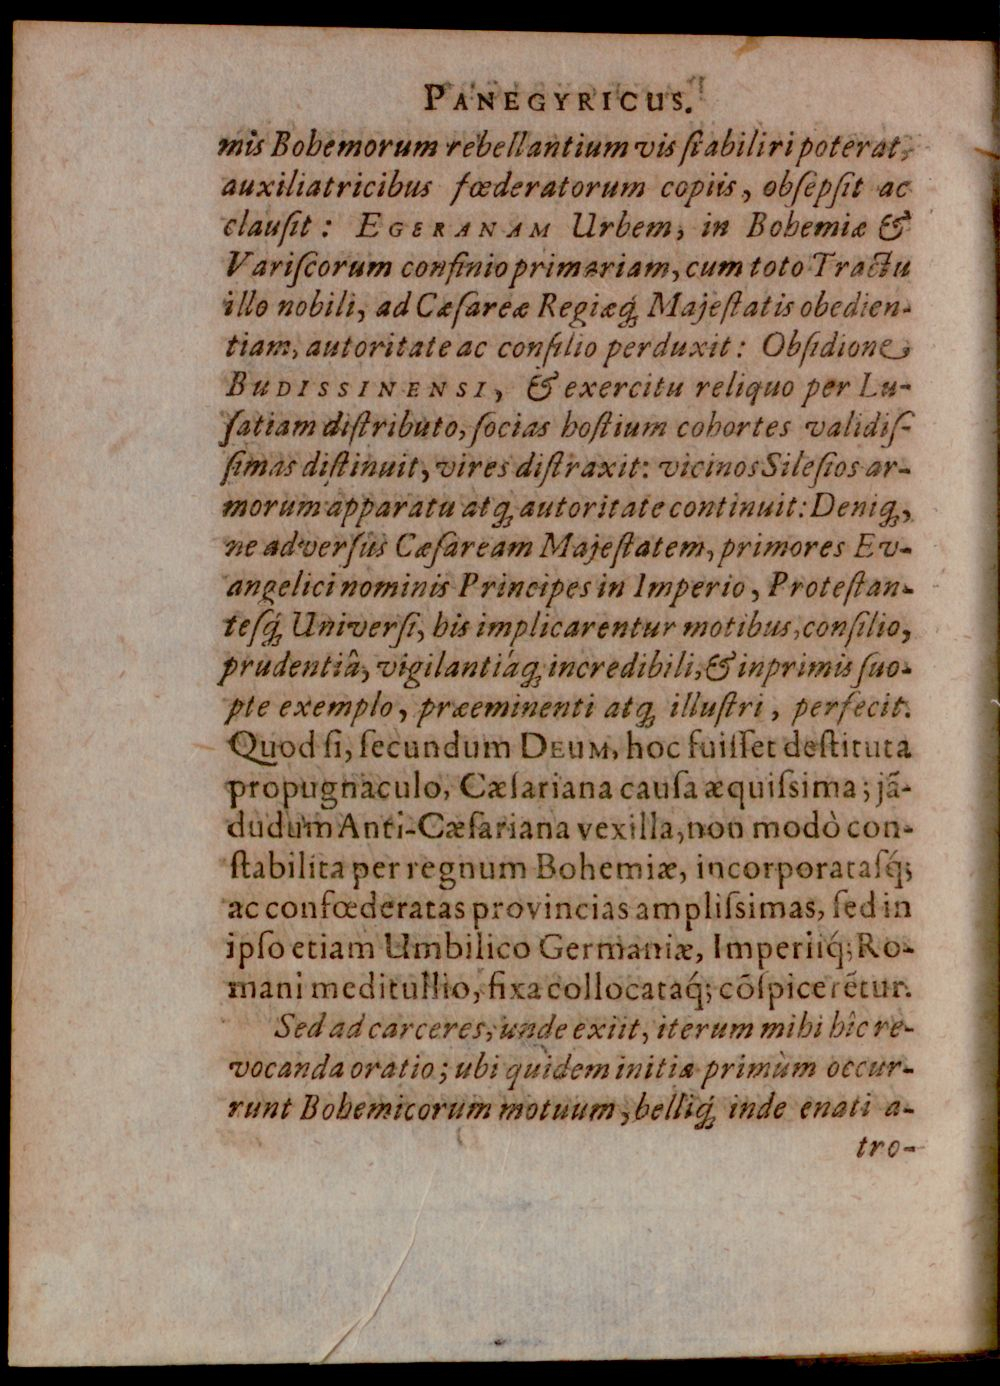 PANEGYRICUS.
mis Bohemorum rebellantium vis ſtabiliri poterat,
auxiliatricibus fœderatorum copiis, obſepſit ac
clauſit: EGERANAM Urbem, in Bohemiæ &
Variſcorum confinio primariam, cum toto Tractu
illo nobili, ad Cæſareæ Regiæq́; Majeſtatis obedien-
tiam, autoritate ac conſilio perduxit: Obſidione
BUDISSINENSI, & exercitu reliquo per Lu-
ſatiam diſtributo, ſocias hoſtium cohortes validiſ-
ſimas diſtinuit, vires diſtraxit: vicinos Sileſios ar-
morum apparatu atq; autoritate continuit: Deniq;,
ne adverſus Cæſaream Majeſtatem, primores Ev-
angelici nominis Principes in Imperio, Proteſtan-
teſq́; Univerſi, his implicarentur motibus, conſilio,
prudentiâ, vigilantiáq; incredibili, & inprimis ſuo-
pte exemplo, præeminenti atq; illuſtri, perfecit.
Quod ſi, ſecundum DEUM, hoc fuiſſet deſtituta
propugnaculo, Cæſariana cauſa æquiſsima; jã-
dudum Anti-Cæſariana vexilla, non modò con-
ſtabilita per regnum Bohemiæ, incorporataſq́;
ac confœderatas provincias ampliſsimas, ſed in
ipſo etiam Umbilico Germaniæ, Imperiiq́; Ro-
mani meditullio, fixa collocataq́; cõſpicerẽtur.
Sed ad carceres, unde exiit, iterum mihi hîc re-
vocanda oratio; ubi quidem initia primùm occur-
runt Bohemicorum motuum, belliq́; inde enati a-
tro-